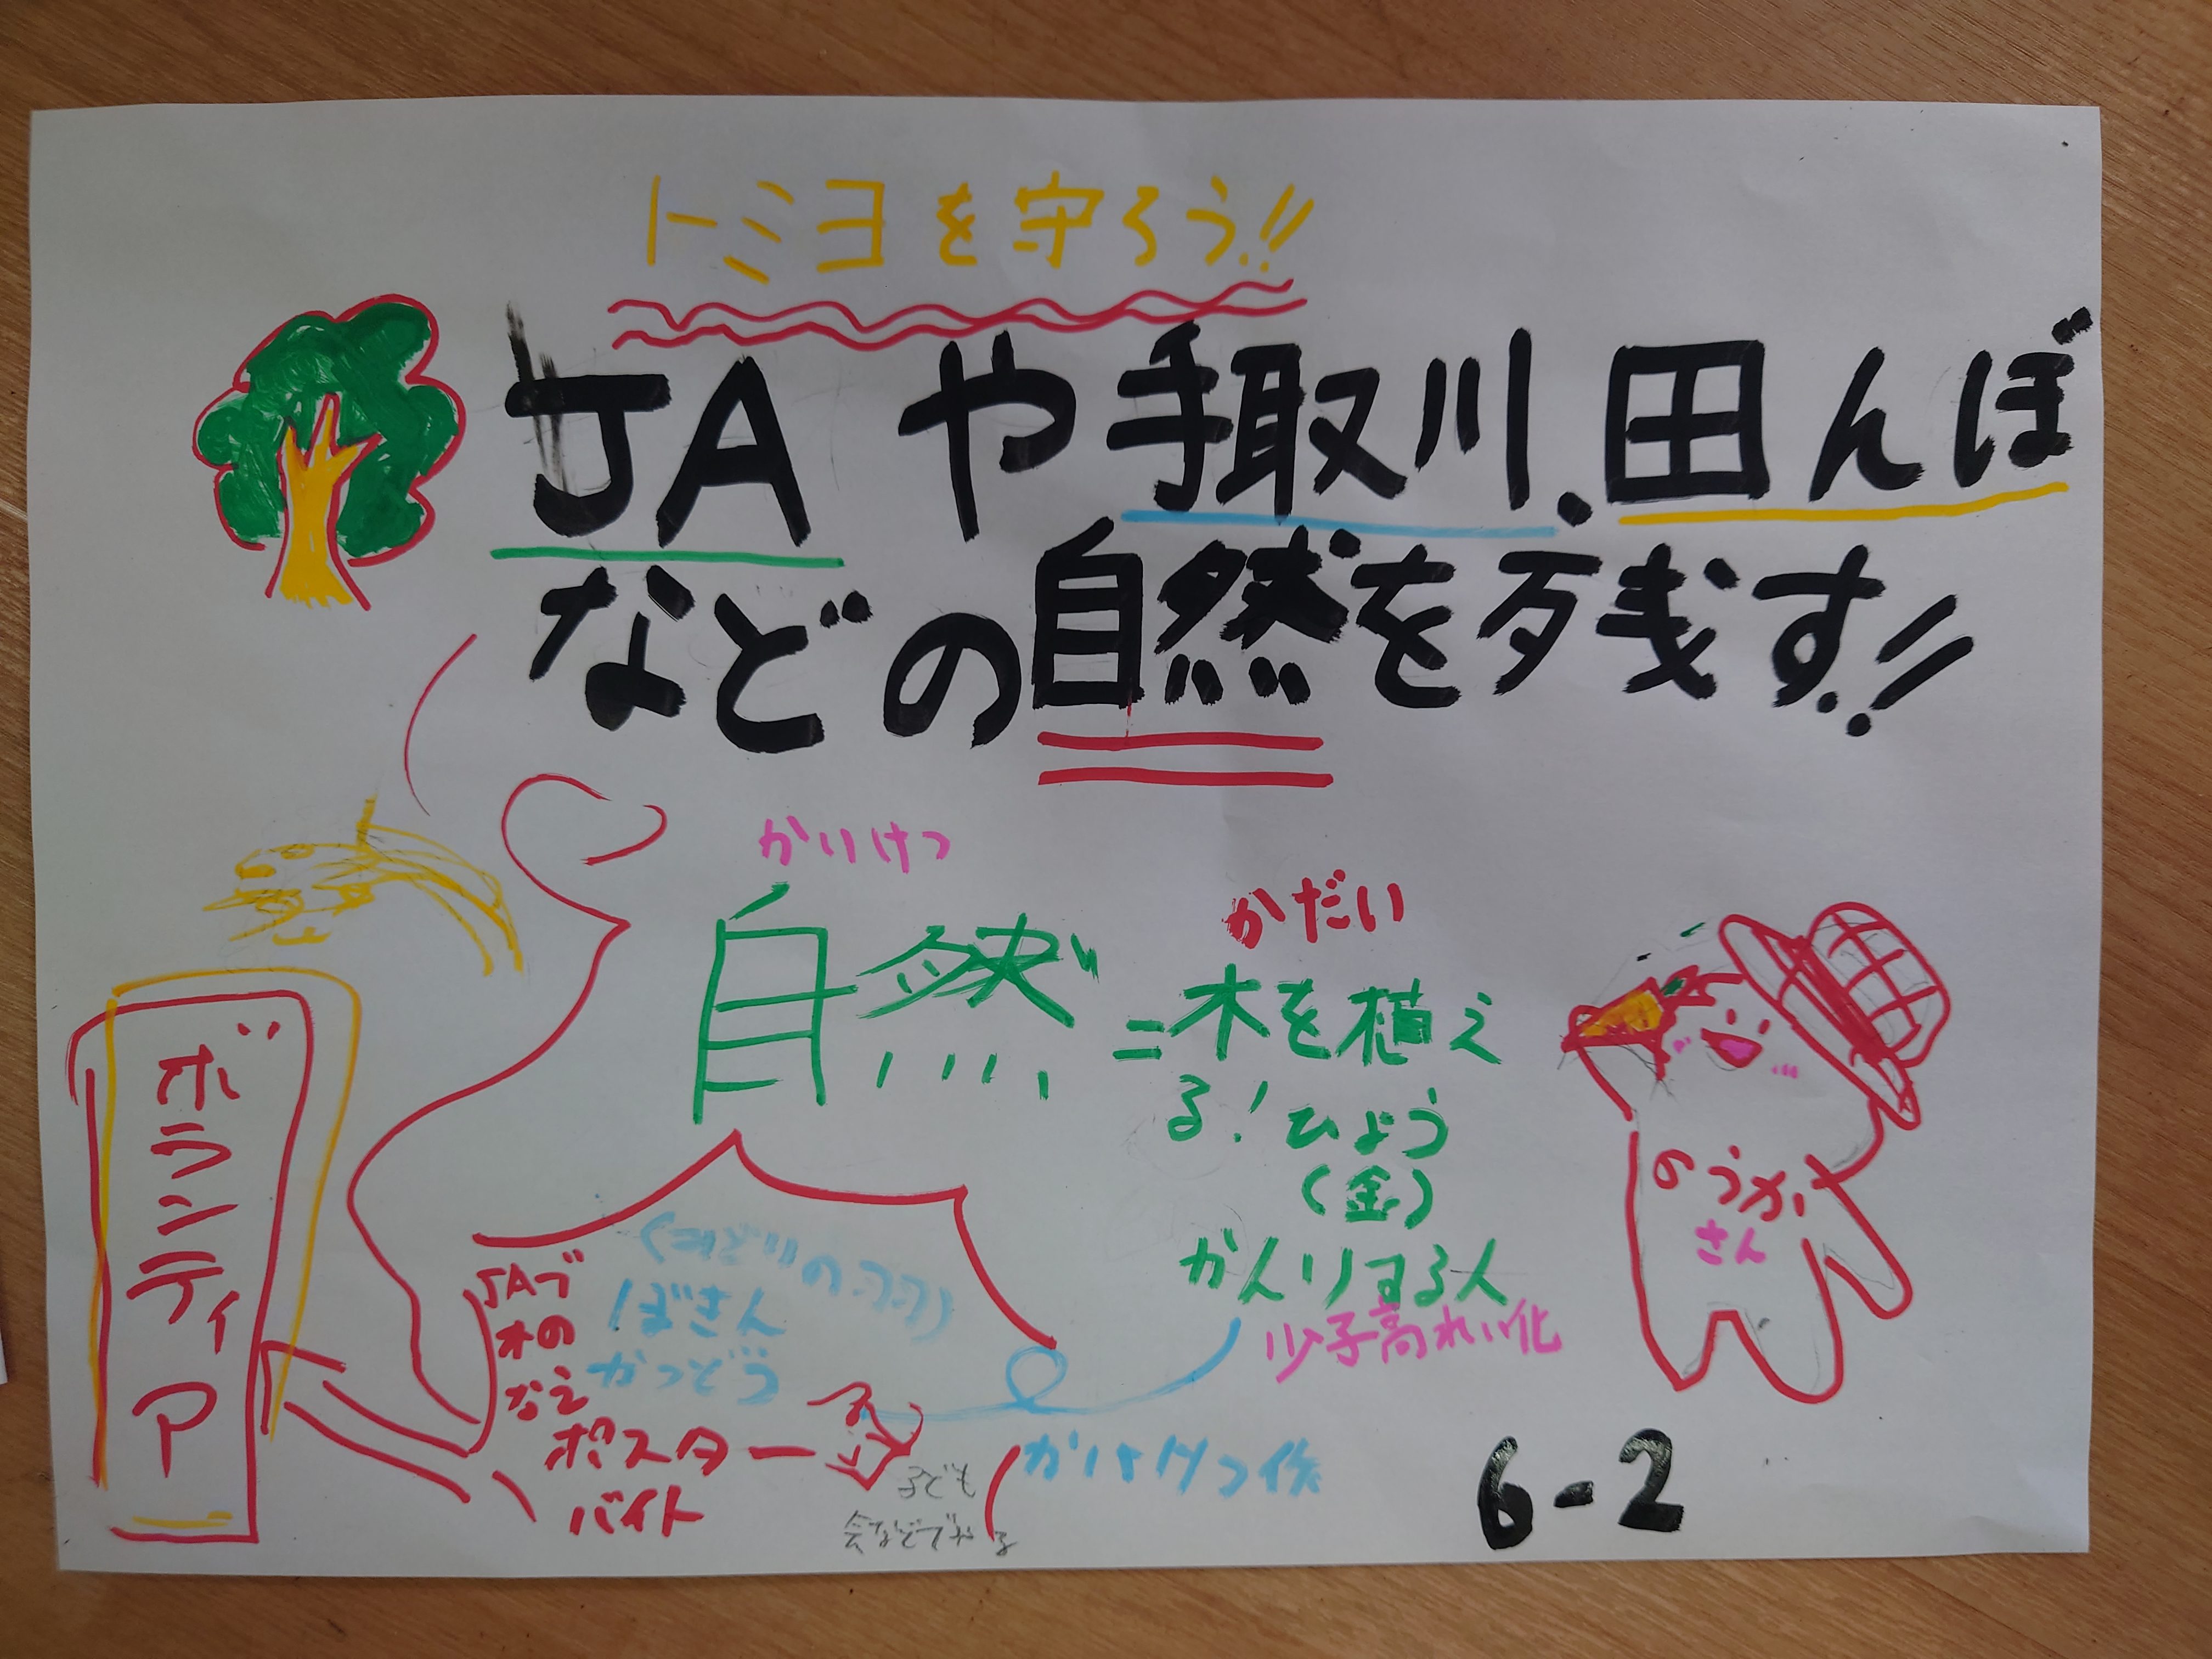 トミヨを守ろう!!
JAや手取川、田んぼ
などの自然を残す!!
かいけつ
自然
かだい
=木を植え
る!ひよう
(金)
かんりする人
少子高れい化
のうか
さん
ボランティア
JAで
木の
なえ
(みどりの
ぼきん
かつどう
ポスター
バイト
子ども
会などでやる
6-2